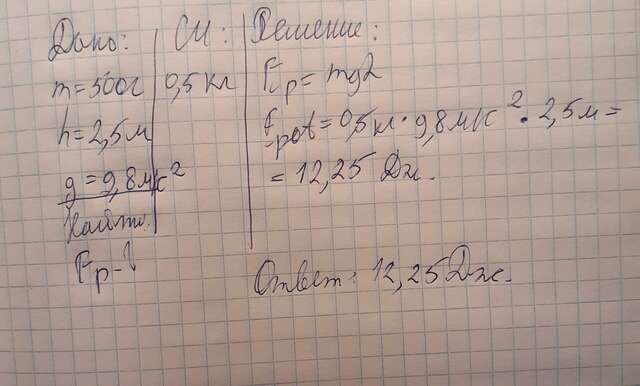 Дано:
m=500г
h=2,5м
g=9,8м/с²
Найти:
Fp-?
СИ:
0,5кг
Решение:
Fp=mg2
Fpot=0,5кг·9,8м/с²·2,5м=
=12,25 Дж.
Ответ: 12,25Дж.